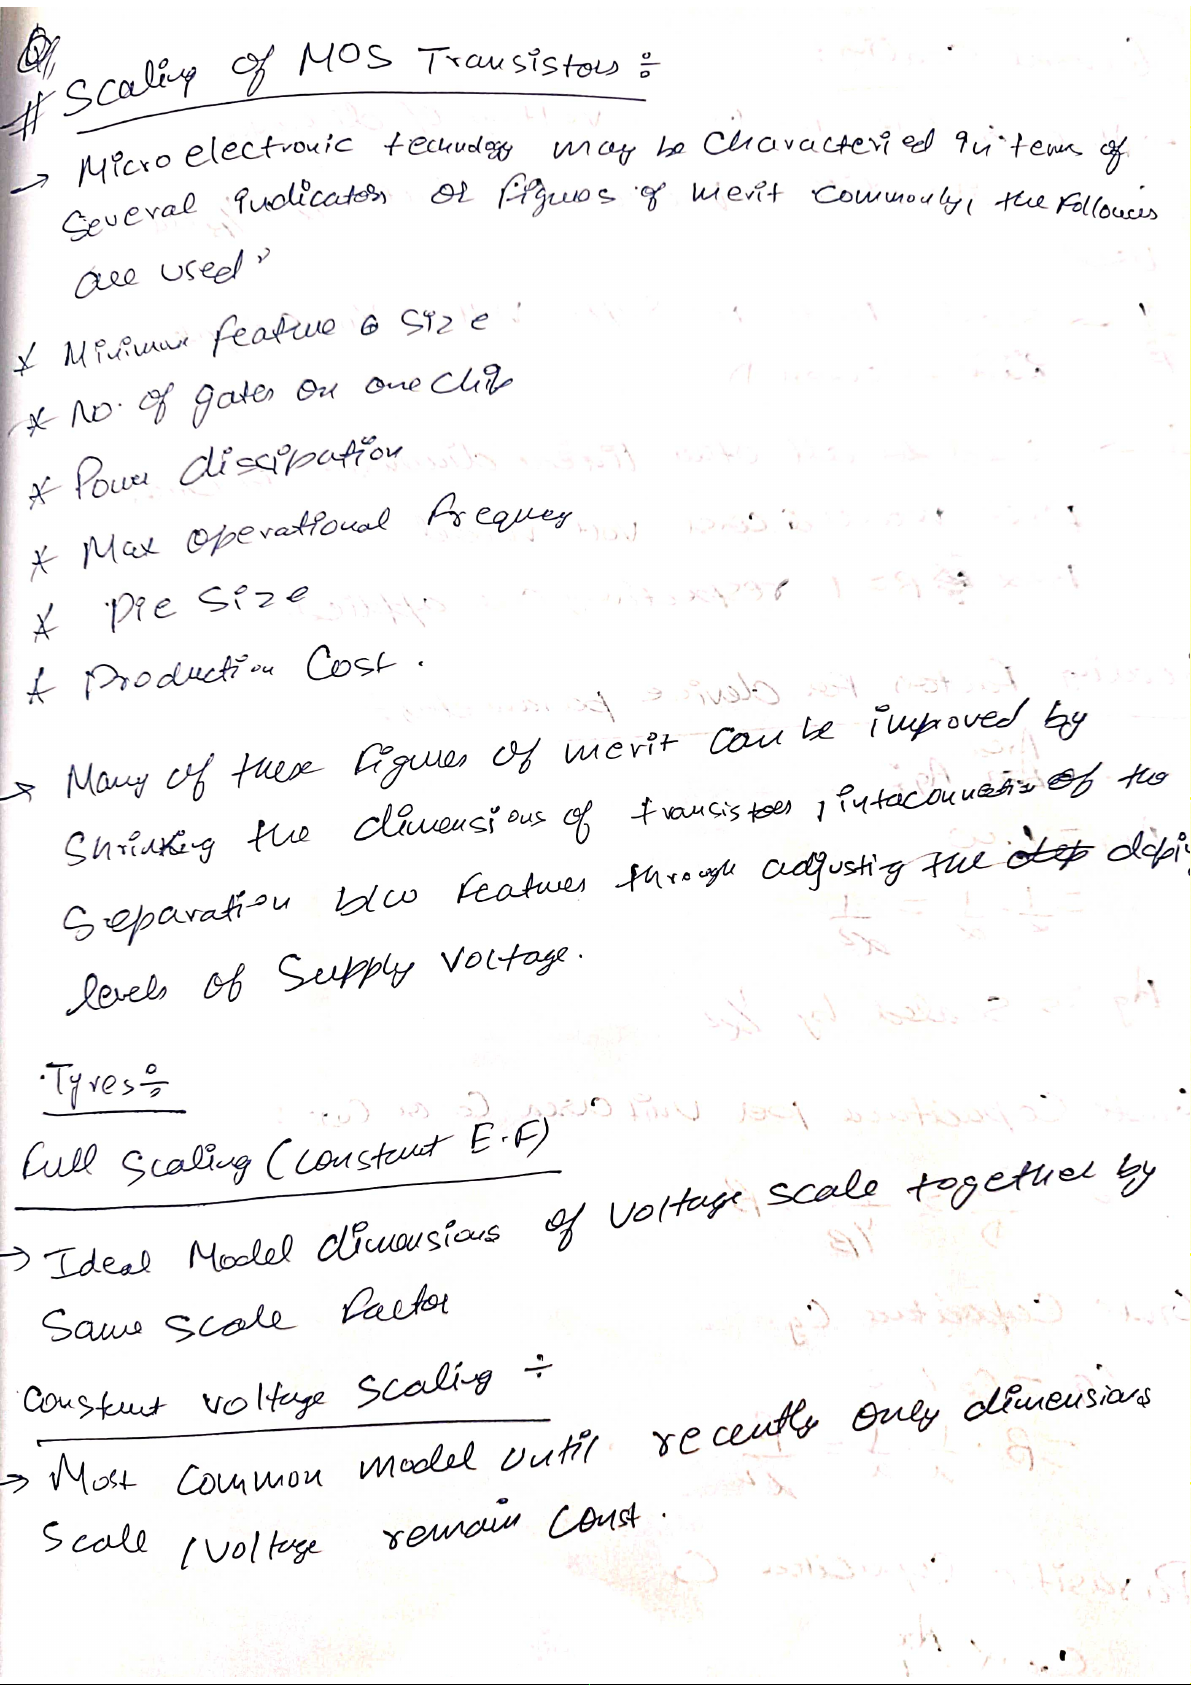 Q,,
# Scaling of MOS Transistors :
→ Micro electronic technology may be Characteried in terms of
Several indicators or figures of merit commonly, the Followings
are used
* Minimum feature size
* No. of gates on one chip
* Power dissipation
* Max operational frequency
* Die Size
* Production Cost .
→ Many of these figures of merit can be improved by
Shrinking the dimensions of transistors , interconnection of the
Separation b/w features through adjusting the dopi
levels of Supply Voltage.
Types :
Full Scaling (constant E.F)
→ Ideal Model dimensions of Voltage scale together by
Same scale factor
Constant voltage scaling ÷
→ Most Common model until recently only dimensions
Scale , voltage remain const .